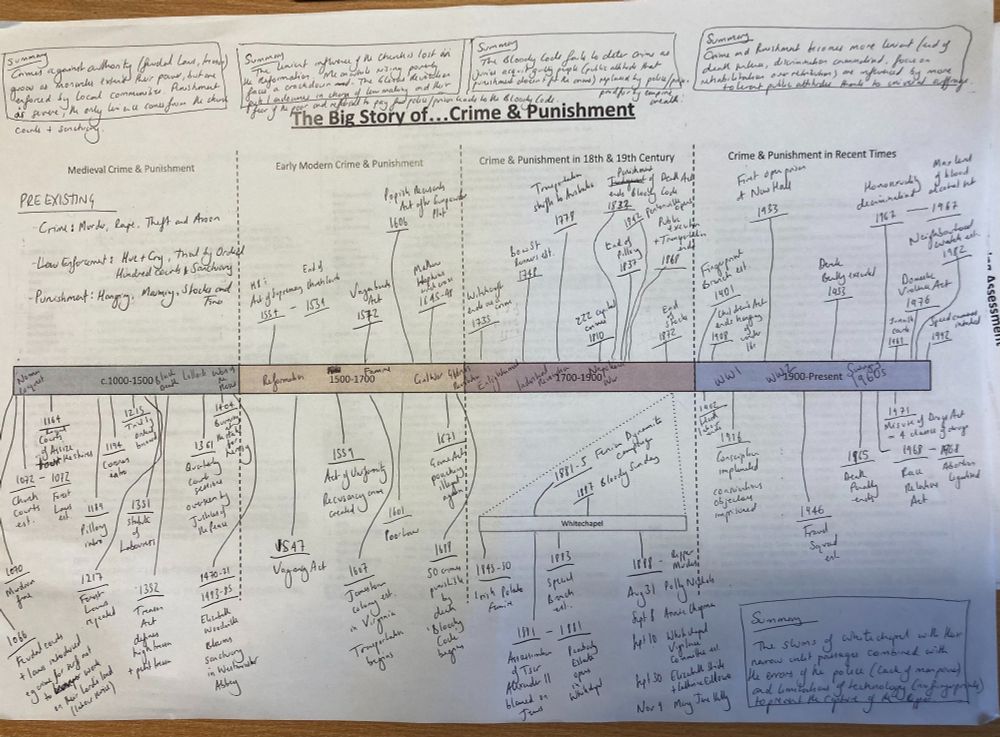 Summary
Crimes against authority (feudal Laws, treason)
grow as monarchs extend their power, but are
enforced by local communities. Punishment
is severe, the only lenience comes from the church
courts + sanctuary.
Summary
The lenient influence of the Church is lost in
the Reformation. Meanwhile rising poverty
faces a crackdown and The Glorious Revolution
put landowners in charge of law making and their
fear of the poor and refusal to pay for police/prison leads to the Bloody Code.
Summary
The Bloody Code fails to deter crime as
juries acquit guilty people (public attitude that
punishment doesn't fit the crime) replaced by police/prison
paid for by empire
wealth.
Summary
Crime and Punishment becomes more lenient (end of
death penalty, discrimination criminalised, focus on
rehabilitation over retribution) are influenced by more
tolerant public attitudes thanks to universal suffrage.
The Big Story of...Crime & Punishment
Medieval Crime & Punishment
Early Modern Crime & Punishment
Crime & Punishment in 18th & 19th Century
Crime & Punishment in Recent Times
PRE EXISTING
- Crime: Murder, Rape, Theft and Arson
- Law Enforcement: Hue + Cry, Trial by Ordeal
Hundred courts & Sanctuary
- Punishment: Hanging, Maiming, Stocks and
Fine
H8's
Act of Supremacy
1534
End of
1539
Vagabonds
Act
1572
Popish Recusants
Act after Gunpowder
Plot
1606
Matthew
Hopkins
1645-
Witchcraft
ends as a
crime
1735
Bow St
Runners est.
1748
Transportation
shifts to Australia
1778
222 capital
crimes
1810
Punishment
of Death Act
ends Bloody Code
1832
End of
Pillory
1837
1842
Pentonville
opens
Public
Execution
+ Transportation
ends
1868
End
of stocks
1872
Fingerprint
Branch est.
1901
Children's Act
ends hanging
of under
16s
1908
First open prison
New Hall
1933
Derek
Bentley executed
1953
Homosexuality
decriminalised
1967
Max level
of blood
alcohol
1967
Neighbourhood
watch est.
1982
Domestic
Violence Act
1976
Speed cameras
1992
Norman
Conquest
c.1000-1500
Black
Death
Lollards
Wars of
the Roses
Reformation
1500-1700
Famine
Civil War
Glorious
Revolution
Enlightenment
Industrial
Revolution
1700-1900
Napoleonic
War
WW1
WW2
1900-Present
Swinging
1960s
1164
Courts
of Assize
1072 - 1072
Church
Courts
est.
Forest
Laws
est.
1070
Murdrum
fine
1066
Feudal courts
+ laws introduced
eg crime for serf not
to work
on their lords land
(labour service)
1194
Coroner
1189
Pillory
intro
1217
Forest
Laws
repealed
1215
Trial by
ordeal
banned
1351
Statute
of
Labourers
1352
Treason
Act
defines
high treason
+ petty treason
1361
Quarterly
court
sessions
overseen by
Justices of
the Peace
1404
Burning
at stake
for
heresy
1470-71
1483-85
Elizabeth
Woodville
claims
sanctuary
in Westminster
Abbey
1547
Vagrancy Act
1559
Act of Uniformity
Recusancy crime
created
1601
Poor Law
1607
Jamestown
colony est.
in Virginia
Transportation
begins
1671
Game Act
poaching
illegal
1688
50 crimes
punishable
by
death
Bloody
Code
begins
1881-5 Fenian Dynamite
campaign
1887 Bloody Sunday
Whitechapel
1845-50
Irish Potato
Famine
1881 - 1881
Assassination
of Tsar
Alexander II
blamed on
Jews
Peabody
Estate
opens
in
Whitechapel
1883
Special
Branch
est.
1888 - Ripper
Murders
Aug 31 Polly Nichols
Sept 8 Annie Chapman
Sept 10 Whitechapel
Vigilance
Committee est.
Sept 30 Elizabeth Stride
+ Catherine Eddowes
Nov 9 Mary Jane Kelly
1916
Conscription
implemented
conscientious
objectors
imprisoned
1946
Fraud
Squad
est
1965
Death
Penalty
ends
1971
Misuse of Drugs Act
- 4 classes of drugs
1968 - 1968
Race
Relations
Act
Abortion
legalised
Summary
The slums of Whitechapel with their
narrow unlit passages combined with
the errors of the police (lack of manpower)
and limitations of technology (no fingerprints)
to prevent the capture of the Ripper.
Assessment